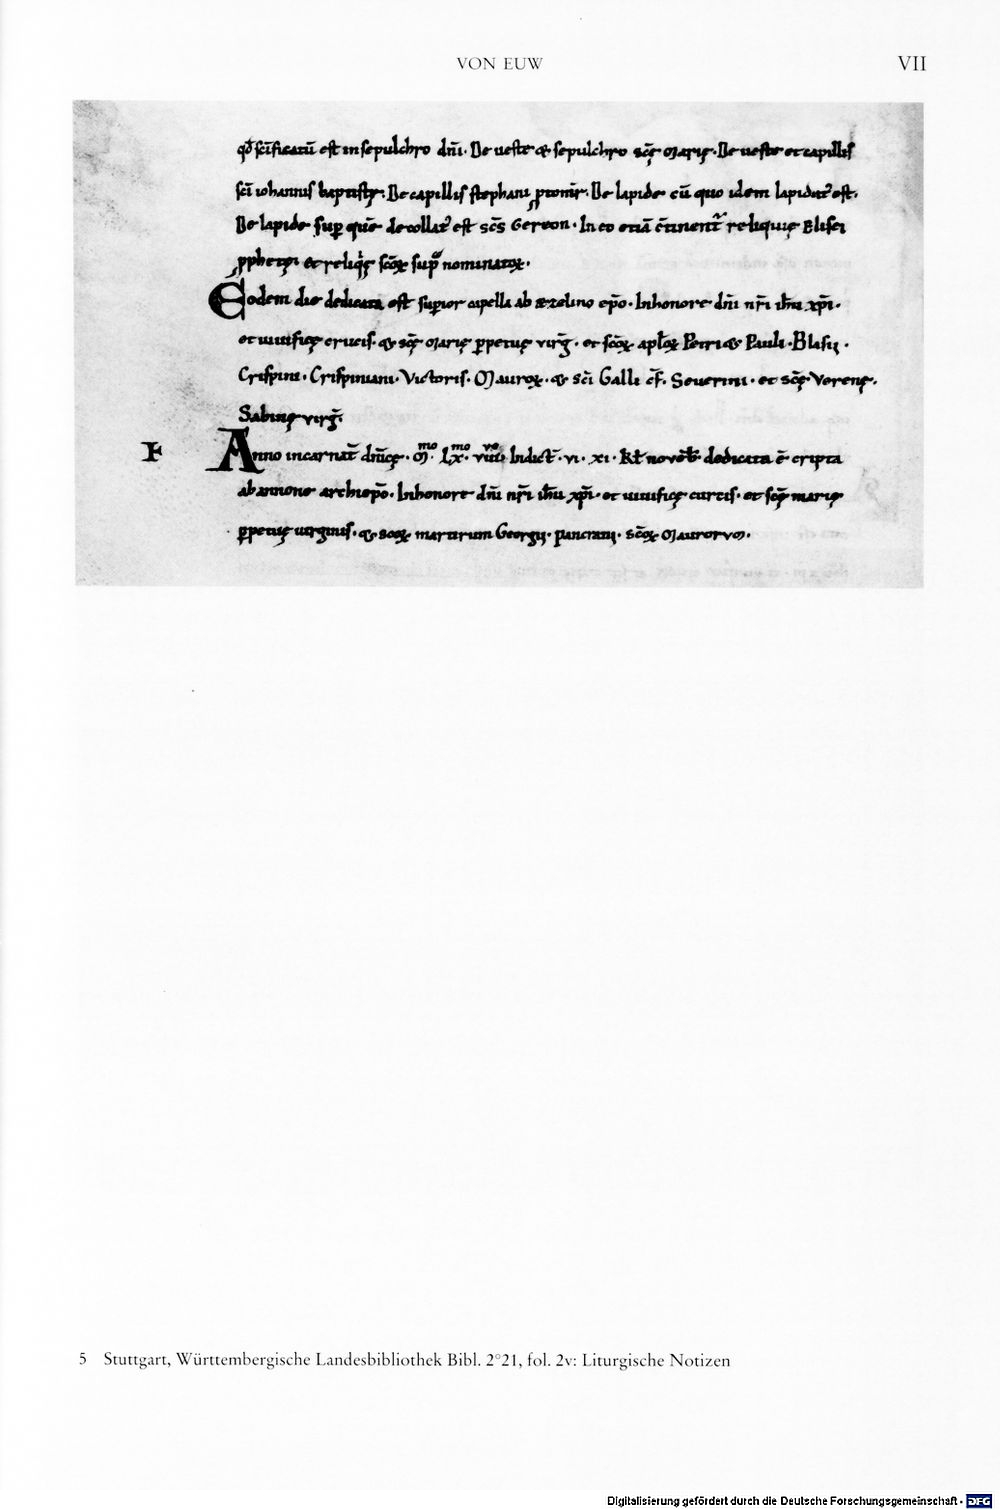 VON EUW
VII
qđ scīficatū est in sepulchro dn̄i. De ueste & sepulchro scē Marię. De ueste et capillis
scī iohannis baptistę. De capillis stephani ptomr̄. De lapide cū quo idem lapidat' est.
De lapide sup quē decollat' est scs Gereon. In eo etiā c̄tinent' reliquię Elisei
pphetę et reliq'ę scōꝝ sup nominatoꝝ.
Eodem die dedicata est supior capella ab æzelino epo. Inhonore dn̄i nr̄i ihu xpi.
et uiuificę crucis. & scę Marię ppetuę virḡ. et scōꝝ aplōꝝ Petri & Pauli. Blasii.
Crispini. Crispiniani. Victoris. Mauroꝝ. & sci Galli cf. Seuerini. et scę Verenę.
Sabinę virḡ.
F Anno incarnat̄ dn̄icę. M̊mo. LXmo. VIIIIvo Indict̄. VI. XI. kl novēb dedicata ē cripta
ab annone archiepo. Inhonore dn̄i nr̄i ihu xpi. et uiuificę curcis. et scę marię
ppetuę uirginis. & scoꝝ martirum Georgii. pancratii. scōꝝ Maurorvm.
5 Stuttgart, Württembergische Landesbibliothek Bibl. 2°21, fol. 2v: Liturgische Notizen
Digitalisierung gefördert durch die Deutsche Forschungsgemeinschaft - DFG